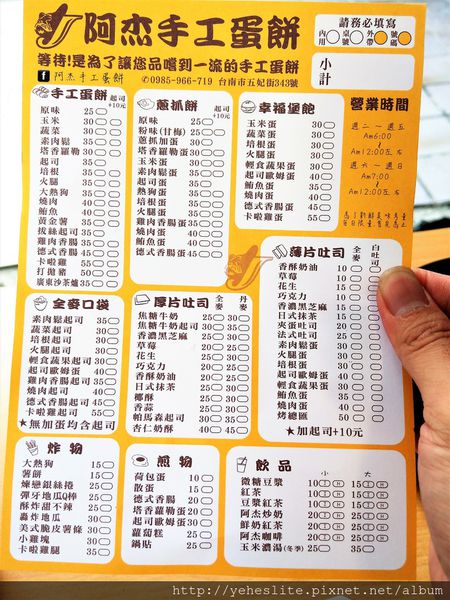 阿杰手工蛋餅
等待!是為了讓您品嚐到一流的手工蛋餅
f 阿杰手工蛋餅 ✆0985-966-719 台南市五妃街343號
請務必填寫
內用 桌號 外帶 號碼
小計
手工蛋餅 起司+10元
原味 25
玉米 30
蔬菜 30
素肉鬆 35
塔香蘿勒 30
起司 35
培根 35
火腿 35
大熱狗 35
燒肉 40
鮪魚 40
黃金薯 35
拔絲起司 35
雞肉香腸 35
德式香腸 45
卡啦雞 55
打拋豬 50
廣東沙茶爐 35
蔥抓餅 起司+10元
原味 25
粉味(甘梅) 25
蔥抓加蛋 30
塔香羅勒蛋 30
玉米蛋 30
素肉鬆蛋 35
起司蛋 35
熱狗蛋 35
培根蛋 35
火腿蛋 35
雞肉香腸蛋 35
燒肉蛋 40
鮪魚蛋 40
德式香腸蛋 45
卡啦雞蛋 55
幸福堡飽
玉米蛋 30
蔬菜蛋 30
培根蛋 30
火腿蛋 30
輕食蔬果蛋 30
起司歐姆蛋 30
鮪魚蛋 35
燒肉蛋 35
卡啦雞蛋 45
營業時間
週二～週五
Am6:00
Am12:00左右
週六～週日
Am7:00
Am12:00左右
全麥口袋
素肉鬆起司 35
蔬菜起司 35
培根起司 35
火腿起司 35
輕食蔬果起司 30
起司歐姆蛋 30
雞肉香腸起司 35
燒肉起司 40
德式香腸起司 45
卡啦雞起司 55
★無加蛋均含起司
厚片吐司 全麥 丹麥
焦糖牛奶 25 30
焦糖牛奶起司 30 35
香濃黑芝麻 25 30
草莓 20 25
花生 25 30
巧克力 25 30
香酥奶油 25 30
日式抹茶 25 30
椰酥 25 30
香蒜 25 30
帕馬森起司 30 35
杏仁奶酥 40 45
薄片吐司 全麥 白吐司
香酥奶油 10
草莓 10
花生 15
巧克力 15
香濃黑芝麻 15
日式抹茶 15
夾蛋吐司 20
法式吐司 25
素肉鬆蛋 30
火腿蛋 30
培根蛋 30
起司歐姆蛋 30
輕食蔬果蛋 30
鮪魚蛋 35
燒肉蛋 40
烤總匯 50
★加起司+10元
炸物
大熱狗 15
薯餅 15
煉戀銀絲捲 25
彈牙地瓜QQ棒 25
酥炸甜不辣 25
轟炸地瓜 30
美式脆皮薯條 30
小雞塊 30
卡啦雞腿 35
煎物
荷包蛋 10
散蛋 15
德式香腸 20
塔香蘿勒蛋 20
起司歐姆蛋 30
蘿蔔糕 25
鍋貼 25
飲品 小 大
微糖豆漿 10 15
紅茶 10 15
豆漿紅茶 10 15
阿杰炒奶 20 25
鮮奶紅茶 20 25
阿杰咖啡 20 25
玉米濃湯(冬季) 25 35
http://yeheslite.pixnet.net/album